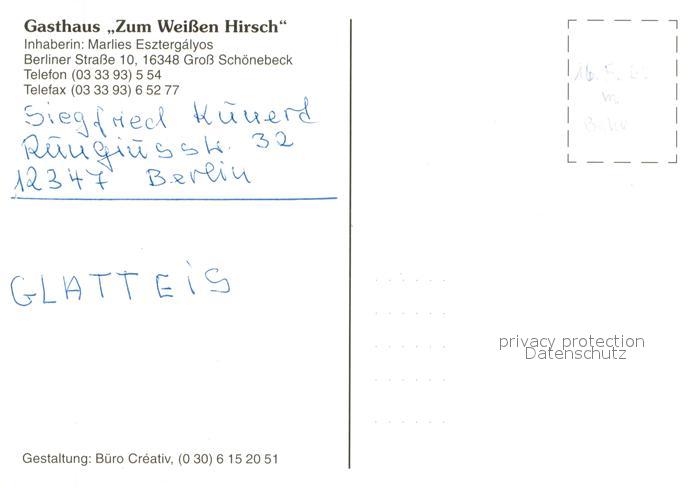 Gasthaus „Zum Weißen Hirsch“
Inhaberin: Marlies Esztergályos
Berliner Straße 10, 16348 Groß Schönebeck
Telefon (03 33 93) 5 54
Telefax (03 33 93) 6 52 77
Siegfried Kunerd
Rungiusstr. 32
12347 Berlin
GLATTEIS
privacy protection
Datenschutz
Gestaltung: Büro Créativ, (0 30) 6 15 20 51